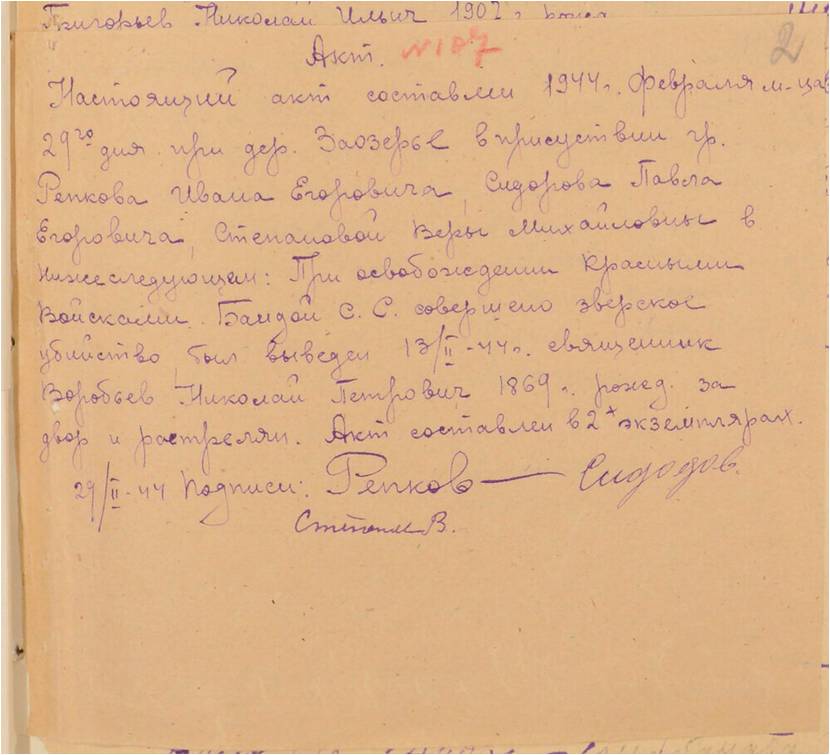 Григорьев Николай Ильич 1902 г рожд
Акт. №187
2
Настоящий акт составлен 1944г. февраля м-ца
29го дня при дер. Заозерье в присуствии гр.
Репкова Ивана Егоровича, Сидорова Павла
Егоровича, Степановой Веры Михайловны в
нижеследующем: При освобождении красными
Войсками. Бандой С.С. совершено зверское
убийство, был выведен 13/II-44г. священник
Воробьев Николай Петрович 1869г. рожд. за
двор и растрелян. Акт составлен в 2х экземплярах.
29/II-44 Подписи: Репков Сидодов.
Степан В.